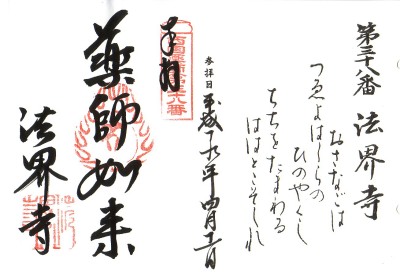 第三十八番 法界寺
おさなごは
つゑよはしらの
ひのやくし
ちちをたまわる
ははとこそしれ
参拝日 平成一九年四月
奉拝
西国薬師第三十八番
薬師如来
法界寺